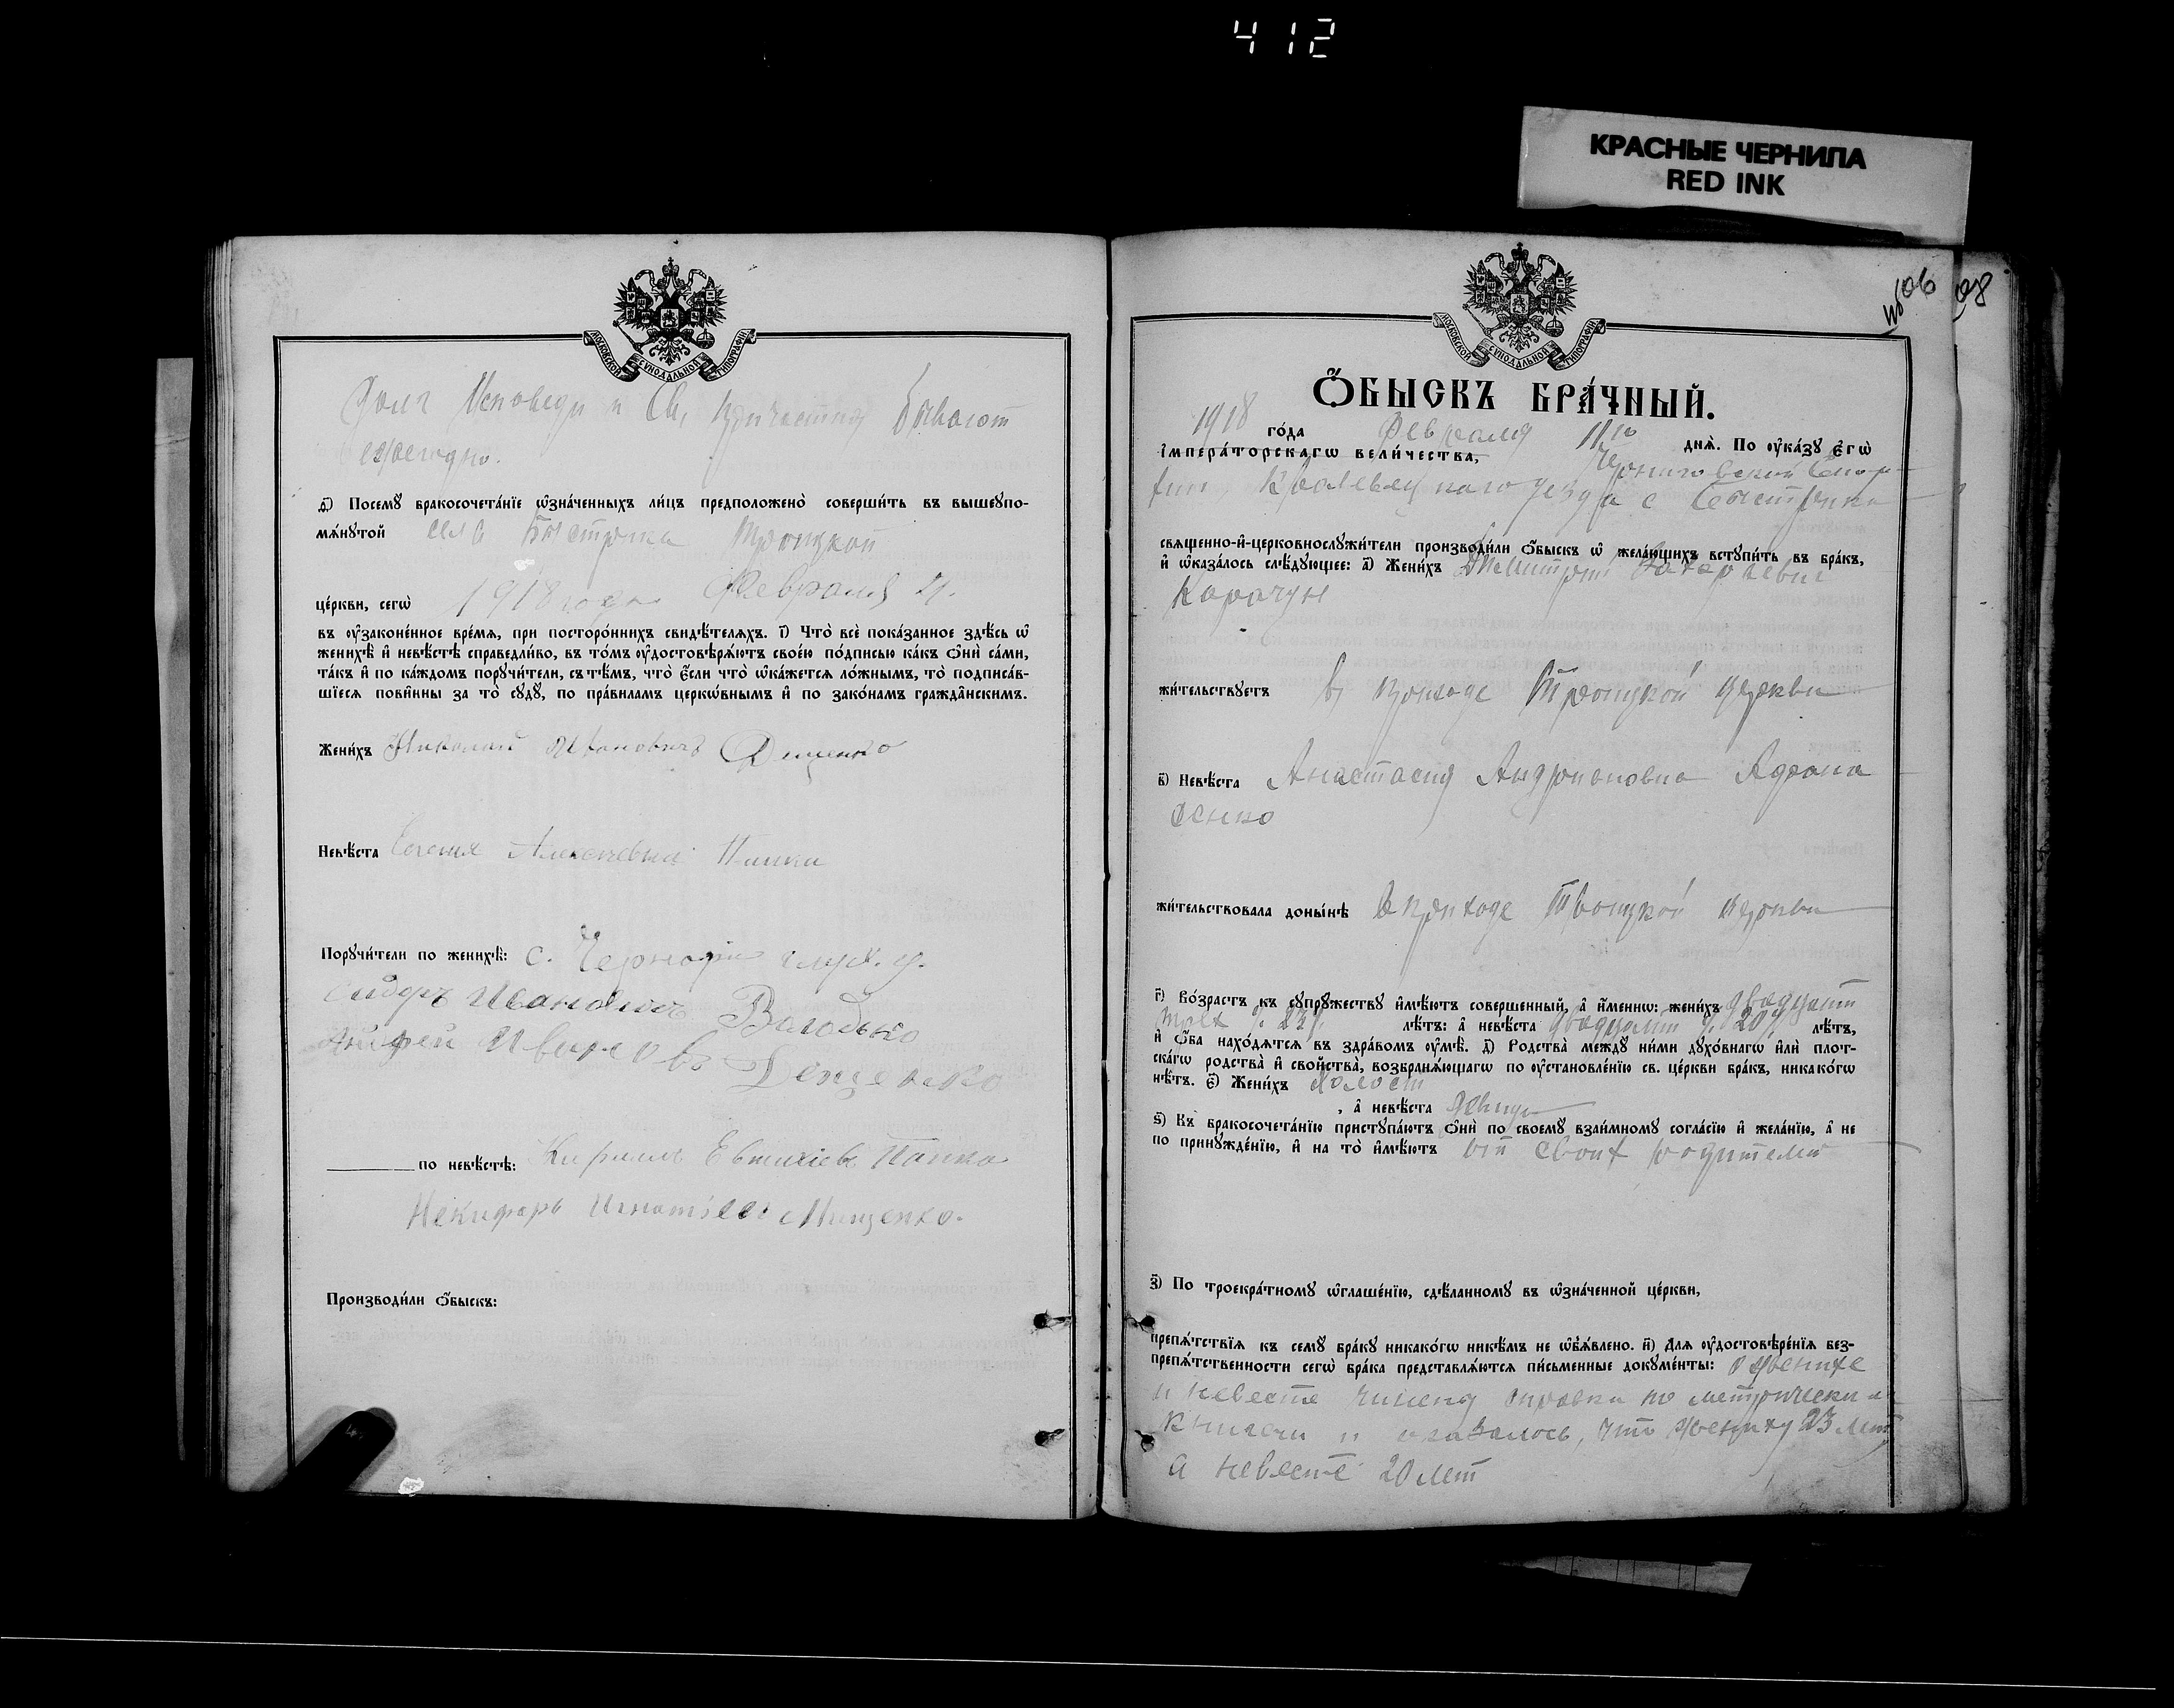 412
КРАСНЫЕ ЧЕРНИЛА
RED INK
МОСКОВСКОЙ СѴНОДАЛЬНОЙ ТИПОГРАФІИ
Долг Исповеди и Св. Причастия бывают
ежегодно.
Посемꙋ бракосочета́нїе ѡ҆зна́ченныхъ ли́цъ предположено̀ соверши́ть въ вышеꙋпо-
мѧ́нꙋтой села Быстрика Троицкой
це́ркви, сегѡ̀ 1918 года Февраля
въ ᲂу҆законе́нное вре́мѧ, при посторо́ннихъ свидѣ́телѧхъ. і҃) Что̀ всѐ пока́занное здѣ́сь ѡ҆
женихѣ̀ и҆ невѣ́стѣ справедли́во, въ то́мъ ᲂу҆достовѣрѧ́ютъ свое́ю по́дписью ка́къ ѻ҆нѝ са́ми,
та́къ и҆ по ка́ждомъ порꙋчи́тели, съ тѣ́мъ, что̀ є҆́сли что̀ ѡ҆ка́жетсѧ ло́жнымъ, то̀ подписа́в-
шїесѧ пови́нны за то̀ сꙋдꙋ̀, по пра́виламъ церкѡ́внымъ и҆ по зако́намъ гражда̑нскимъ.
Жени́хъ Николай Ивановичъ
Невѣ́ста Алексеевна
Порꙋчи́тели по женихѣ̀: с.
Сидоръ Ивановичъ Володько
Андрей Деменко
по невѣ́стѣ: Кирилъ Евтихіевъ Папка
Никифоръ Игнатіевъ Мищенко.
Производи́ли ѻ҆́быскъ:
106 08
Ѻ҆́БЫСКЪ БРА́ЧНЫЙ.
1918 го́да Февраля 11го днѧ̀. По ᲂу҆ка́зꙋ є҆гѡ̀
і҆мпера́торскагѡ вели́чества, Черниговской Епар-
хии, Кролевецкаго уезда с Быстрика
свѧще́нно-и҆-церковнослꙋжи́тели производи́ли ѻ҆́быскъ ѡ҆ жела́ющихъ встꙋпи́ть въ бра́къ,
и҆ ѡ҆каза́лось слѣ́дꙋющее: а҃) Жени́хъ Димитрий Захарьевич
Карачун
жи́тельствꙋетъ в приходе Троицкой церкви
в҃) Невѣ́ста Анастасия Андроновна Адаманова
сенко
жи́тельствовала доны́нѣ в приходе Троицкой церкви
г҃) Во́зрастъ къ сꙋпрꙋ́жествꙋ и҆мѣ́ютъ соверше́нный, а҆ и҆́меннѡ: жени́хъ двадцати
трех г. 23 лѣ́тъ: а҆ невѣ́ста двадцати г. 20 лѣ́тъ,
и҆ ѻ҆́ба нахо́дѧтсѧ въ здра́вомъ ᲂу҆мѣ̀. д҃) Родства̀ междꙋ̀ ни́ми дꙋхо́внагѡ и҆лѝ плот-
ска́гѡ родства̀ и҆ сво́йства̀, возбранѧ́ющагѡ по ᲂу҆становле́нїю св. це́ркви бра́къ, никако́гѡ
нѣ́тъ. є҃) Жени́хъ холост
, а҆ невѣ́ста девица
ѕ҃) Къ бракосочета́нїю пристꙋпа́ютъ ѻ҆нѝ по своемꙋ̀ взаи́мномꙋ согла́сїю и҆ жела́нїю, а҆ не
по принꙋжде́нїю, и҆ на то̀ и҆мѣ́ютъ от своих родителей
з҃) По троекра́тномꙋ ѡ҆глаше́нїю, сдѣ́ланномꙋ въ ѡ҆зна́ченной це́ркви,
препѧ́тствїѧ къ семꙋ̀ бра́кꙋ никако́гѡ никѣ́мъ не ѡ҆б̾ѧ́влено. и҃) Для ᲂу҆достовѣре́нїѧ без-
препѧ́тственности сегѡ̀ бра́ка представлѧ́ютсѧ пи́сьменные докꙋме́нты: о женихе
и невесте справки по метрически м
книгам и оказалось, что жениху 23 лет
а невесте 20 лет